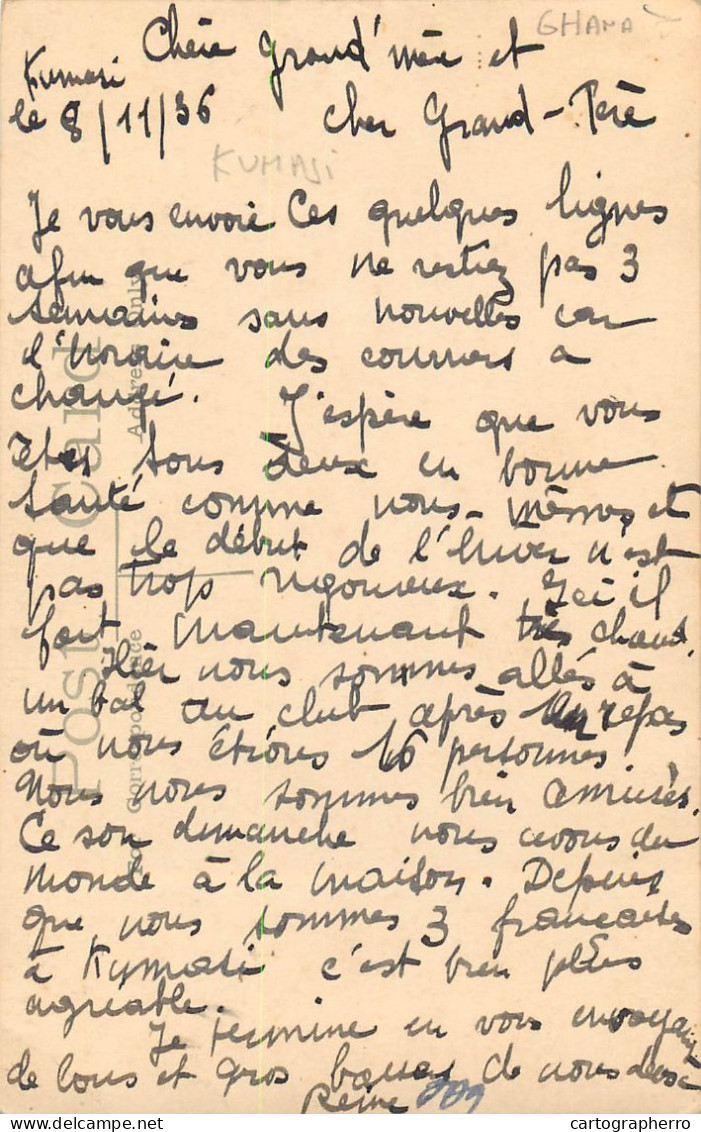 GHANA
Chère Grand'mère et
Kumasi
le 8/11/36
cher Grand-Père
KUMASI
Je vous envoie ces quelques lignes
afin que vous ne restiez pas 3
semaines sans nouvelles car
l'horaire des courriers a
changé. J'espère que vous
êtes tous deux en bonne
santé comme nous-mêmes et
que le début de l'hiver n'est
pas trop rigoureux. Ici il
fait maintenant très chaud.
Hier nous sommes allés à
un bal au club après un repas
où nous étions 16 personnes.
Nous nous sommes bien amusés.
Ce soir dimanche nous avons du
monde à la maison. Depuis
que nous sommes 3 françaises
à Kumasi c'est bien plus
agréable.
Je termine en vous envoyant
de bons et gros baisers de nous deux
Reine
Post Card
Correspondence
Address Only
cartographerro